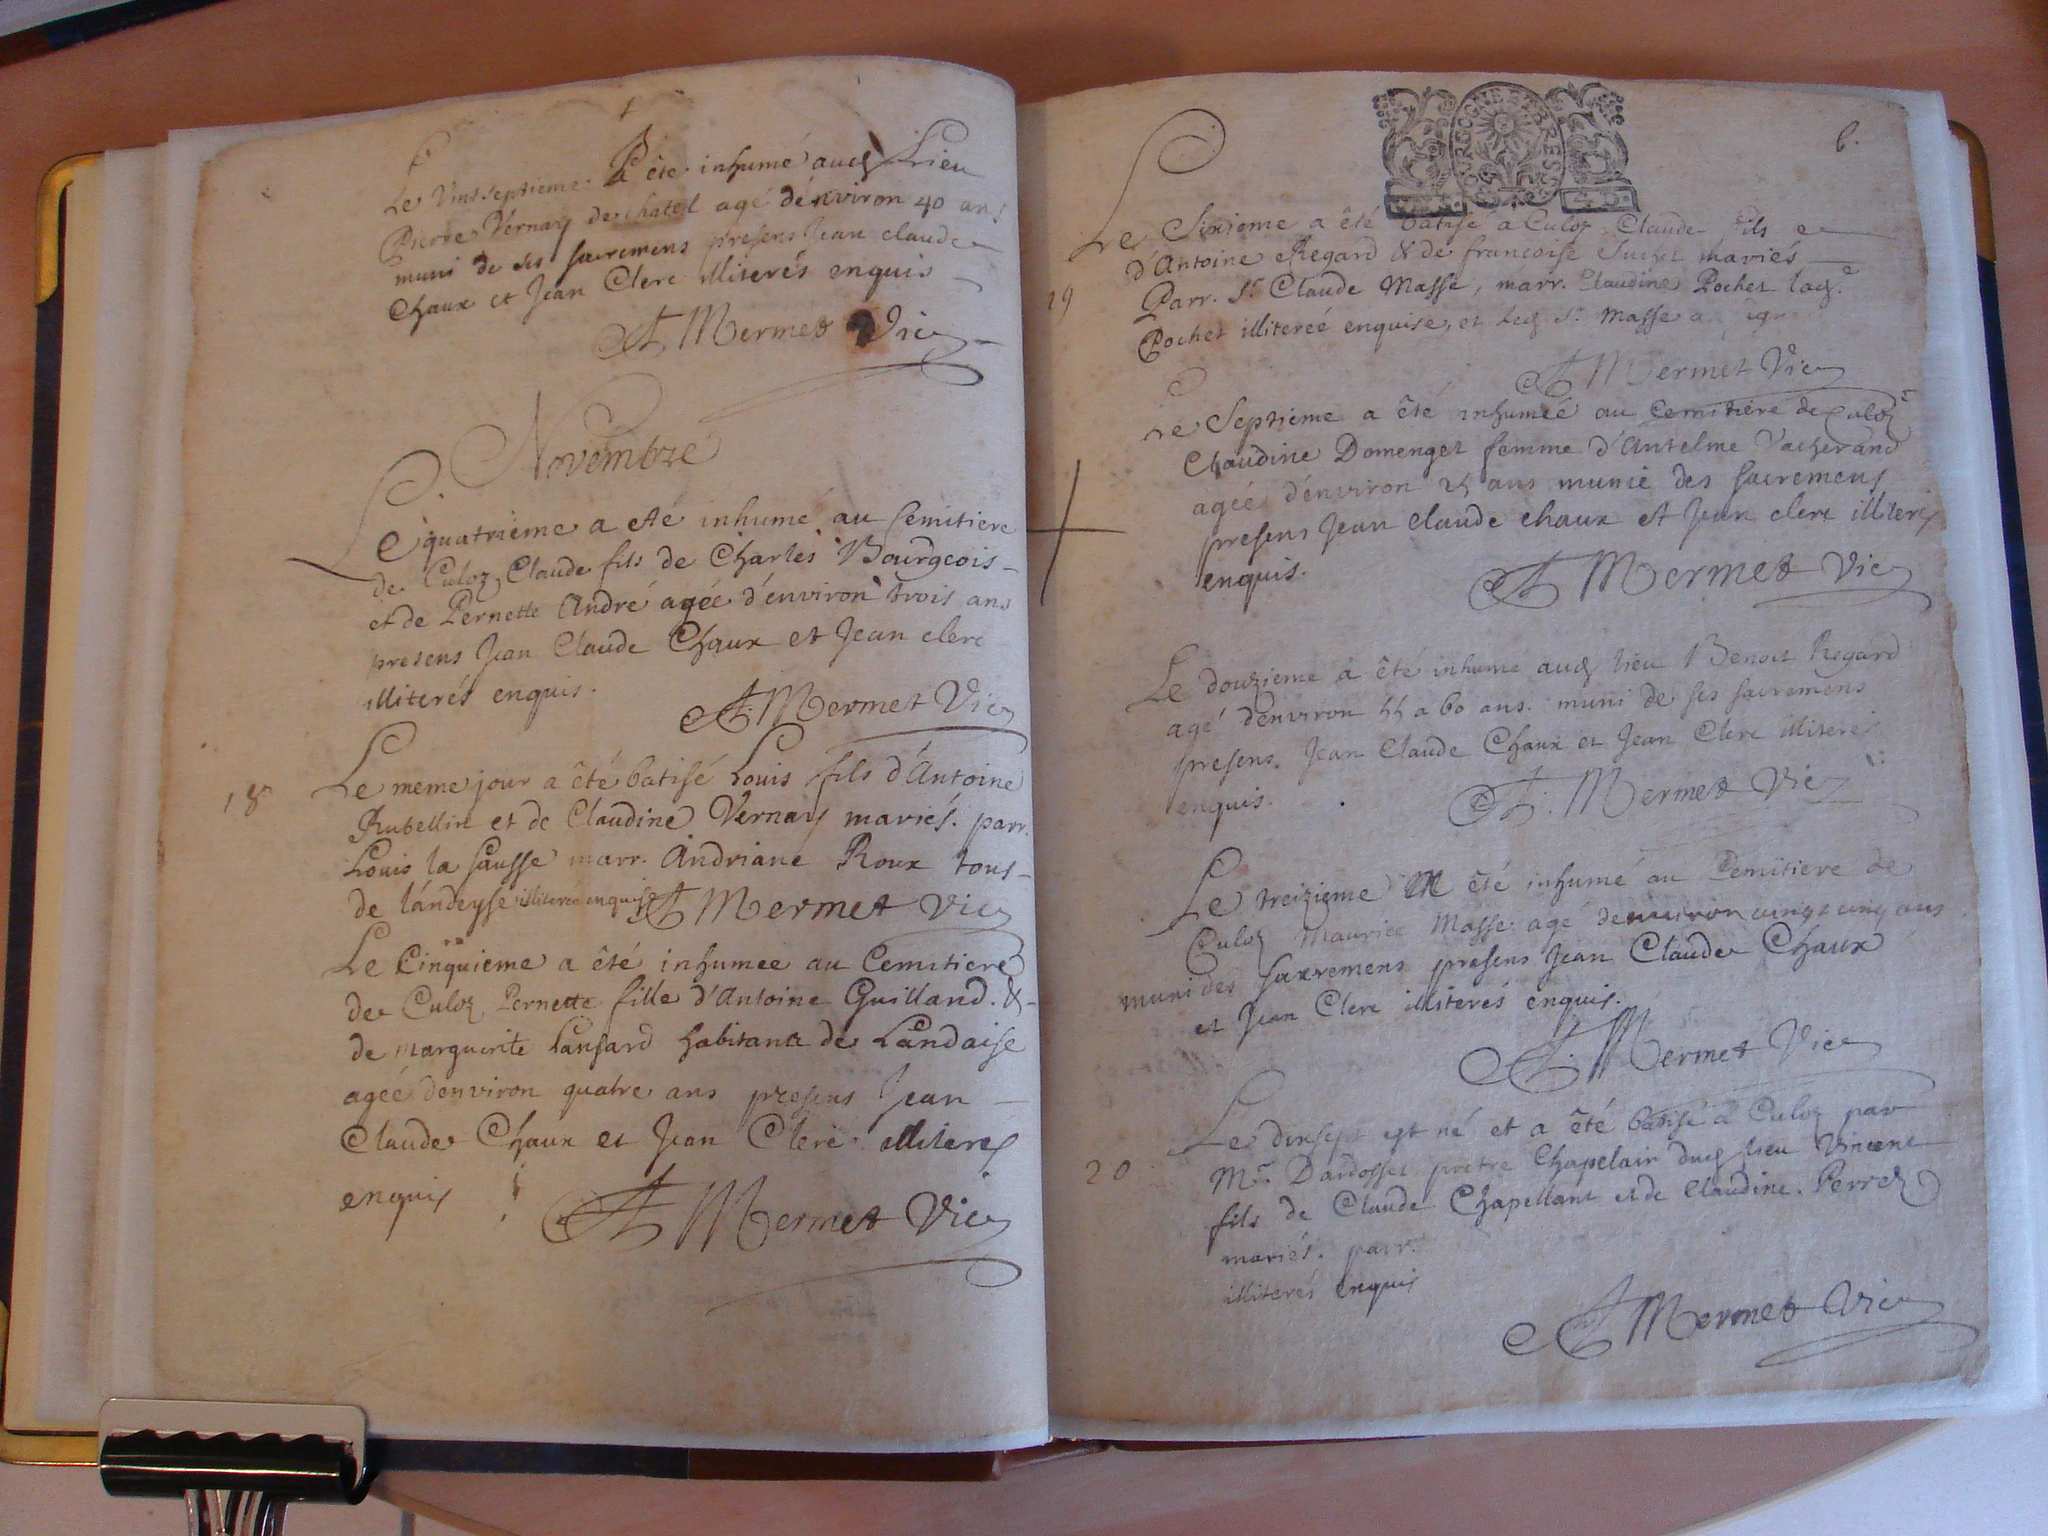 Le Vint septieme a été inhumé audt Lieu
Pierre Vernay de chatel agé d'énviron 40 ans
muni de ses sacremens presens Jean claude
Chaux et Jean Clerc illiterés enquis
A Mermet Vic
Novembre
Le quatrieme a eté inhumé au Cemitiere
de Culoz Claude fils de Charles Bourgeois
et de Pernette André agéé d'énviron trois ans
presens Jean Claude Chaux et Jean clerc
illiterés enquis.
A. Mermet Vic
18
Le meme jour a êté batisé Louis fils d'Antoine
Rubellin et de Claudine Vernay mariés. parr.
Louis la sausse marr. Andriane Roux tous
de lándeyse illiterés enquis A Mermet Vic
Le Cinquieme a êté inhumee au Cemitiere
de Culoz Pernette fille d'Antoine Guilland. &
de Marguerite habitant de Landaise
agéé d'énviron quatre ans presens Jean
Claude Chaux et Jean Clerc illiterés
enquis
A Mermet Vic
6.
BOURGOGNE ET BRESSE
Le Sixieme a êté batisé a Culoz Claude fils
d'Antoine Regard & de francoise mariés
19
Parr. Sr. Claude Masse, marr. Claudine Pochet ladt.
Pochet illitereé enquise, et ledt Sr. Masse a
A Mermet Vic
Le Septieme a êté inhumeé au Cemitiere de Culoz
Claudine Domenget femme d'Antelme Vacherand
agéé d'énviron 25 ans munie des sacremens
presens Jean claude chaux et Jean clerc illiterés
enquis.
A Mermet Vic
Le douzieme a êté inhumé audt lieu Benoit Regard
agé d'énviron 55 a 60 ans. muni de ses sacremens
presens. Jean Claude Chaux et Jean Clerc illiterés
enquis.
A. Mermet Vic
Le treizieme a été inhumé au Cemitiere de
Culoz Maurice Masse agé d'environ vingt cinq ans
muni des sacremens presens Jean Claude Chaux
et Jean Clerc illiterés enquis.
A. Mermet Vic
Le dixsept est né et a êté batisé a Culoz par
20
Mr. Dardosset pretre Chapelain dudt lieu Vincent
fils de Claude Chapellant et de Claudine. Perret
mariés. parr.
illiterés enquis
A Mermet Vic